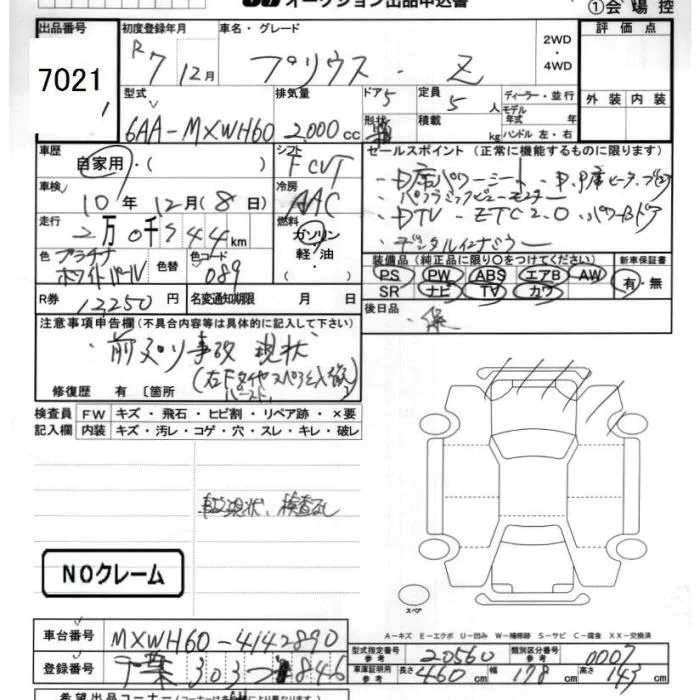 オークション出品申込書
①会場控
出品番号 初度登録年月 車名・グレード 2WD 評価点
7021 R7 12月 プリウス・Z ・4WD
型式 排気量 ドア 5 定員 5人 ディーラー・並行 外装 内装
6AA-MXWH60 2,000cc 形状 積載 kg モデル年式 年式
ハンドル 左・右
車歴 シフト セールスポイント(正常に機能するものに限ります)
自家用・( ) FCVT
車検 冷房 ・パノラミックビューモニター
10年12月(8日) AAC ・DTV ・ETC2.0 ・パワーBドア
走行 燃料 ・デジタルインナーミラー
2万0千944km ガソリン
軽・油
色 プラチナホワイトパール 色替 色コード 089 装備品(純正品に限り○をつけてください) 新車保証書
PS PW ABS エアB AW 有・無
R券 12250円 名変通知期限 月 日 SR ナビ TV カワ
後日品
注意事項申告欄(不具合内容等は具体的に記入して下さい)
・前廻り事故現状
修復歴 有 〔箇所
検査員 FW キズ・飛石・ヒビ割・リペア跡・×要
記入欄 内装 キズ・汚レ・コゲ・穴・スレ・キレ・破レ
現状、検査なし
NOクレーム
スペア
A-キズ E-エクボ U-凹み W-補修跡 S-サビ C-腐食 XX-交換済
車台番号 MXWH60-4142890
型式指定番号 参考 20560 類別区分番号 参考 0007
登録番号 千葉 303 1846
車庫証明用 参考 長さ 460cm 幅 178cm 高さ 143cm
希望出品コーナー